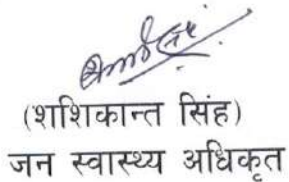 (शशिकान्त सिंह)
जन स्वास्थ्य अधिकृत